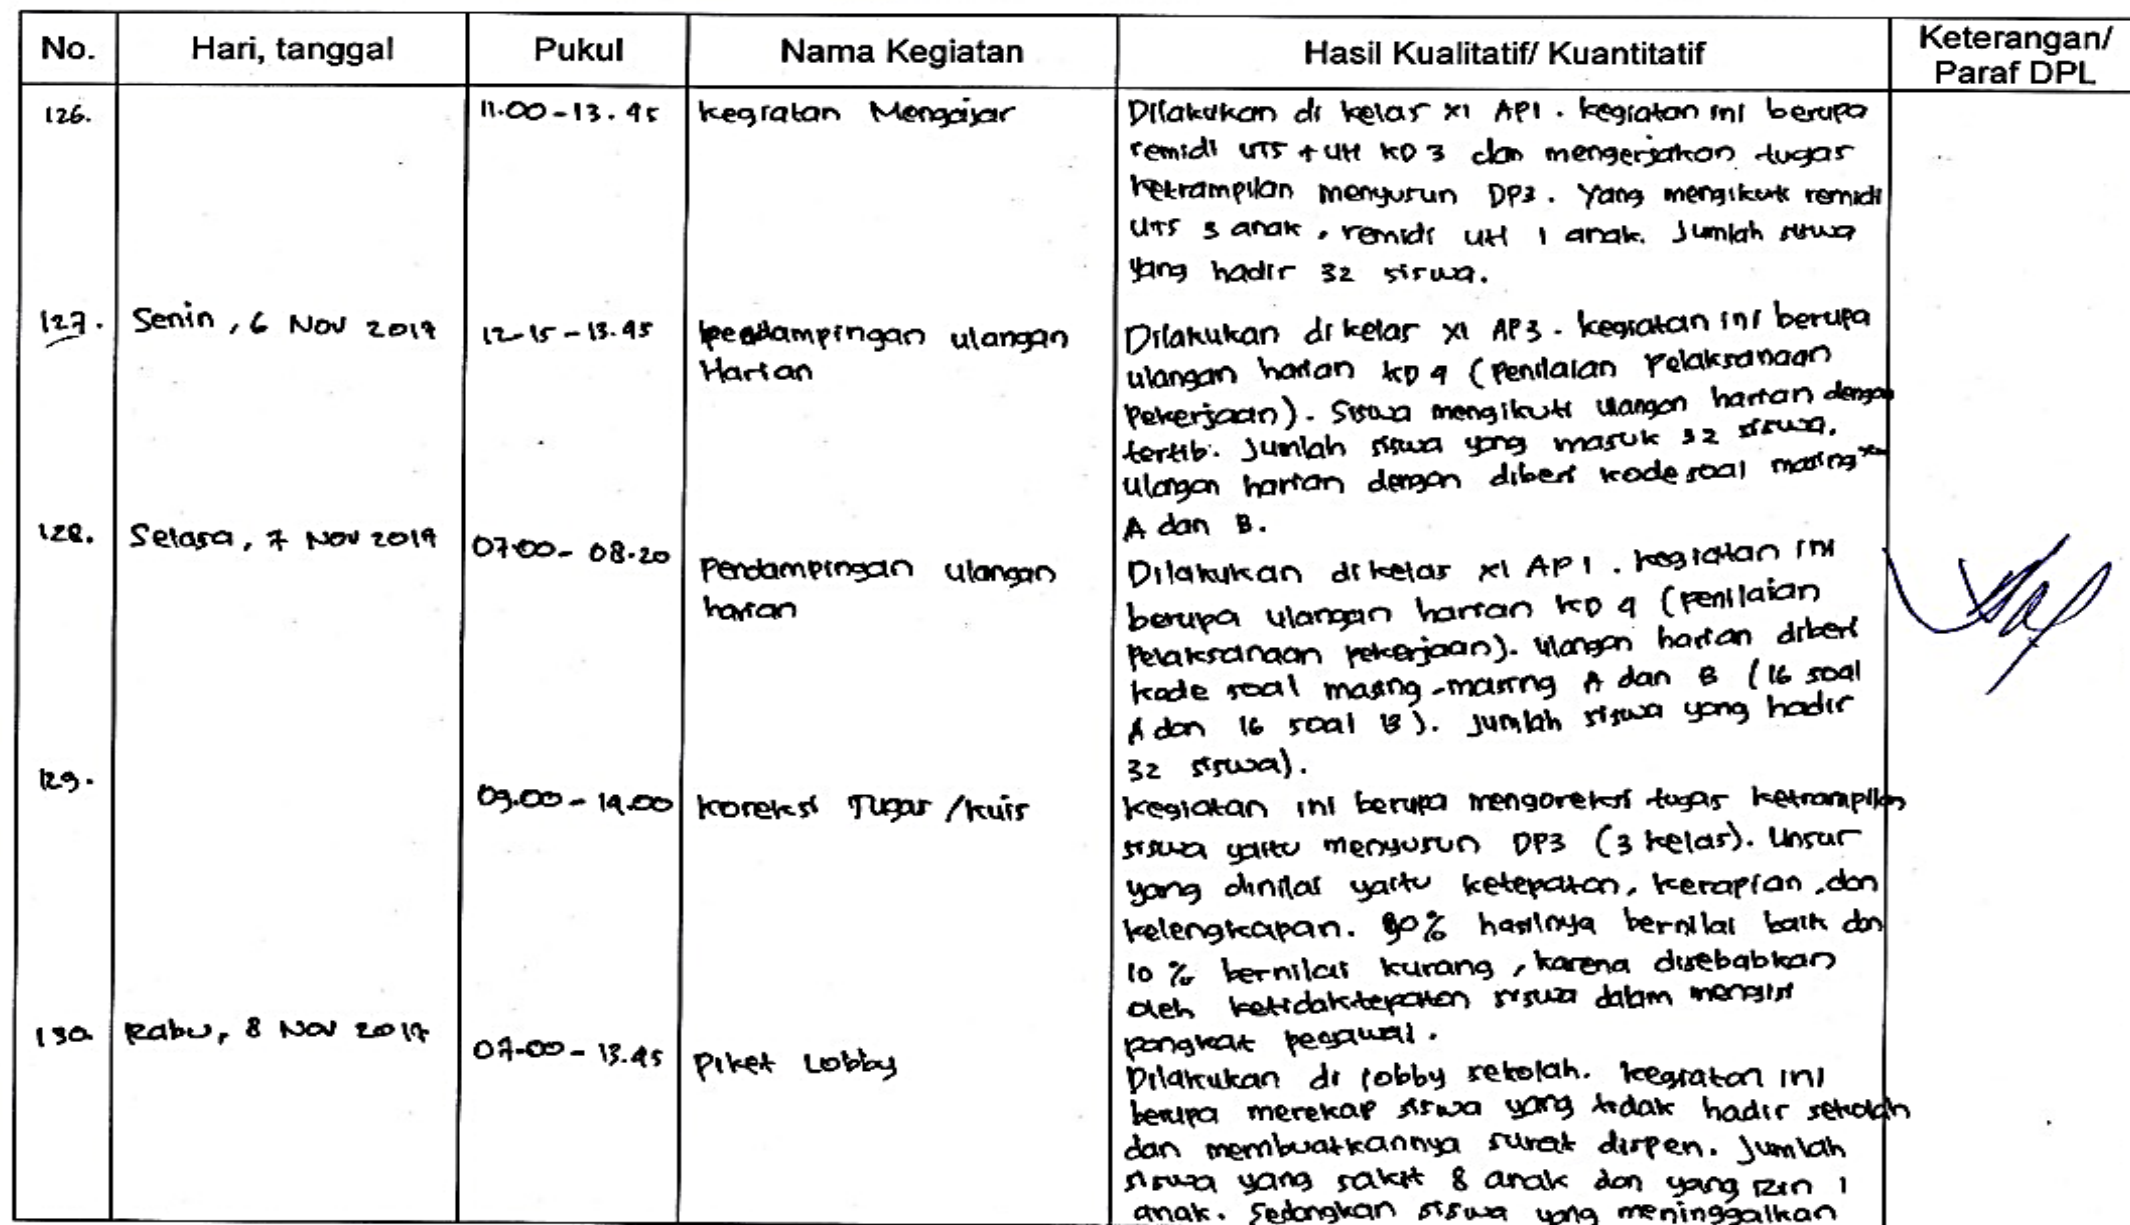 No. Hari, tanggal Pukul Nama Kegiatan Hasil Kualitatif/ Kuantitatif Keterangan/ Paraf DPL
126. 11.00 - 13.45 Kegiatan Mengajar Dilakukan di kelas XI AP1. Kegiatan ini berupa
remidi UTS + UH KD 3 dan mengerjakan tugas
ketrampilan menyusun DP3. Yang mengikuti remidi
UTS 3 anak, remidi UH 1 anak. Jumlah siswa
yang hadir 32 siswa.
127. Senin, 6 Nov 2017 12-15 - 13.45 Pendampingan ulangan Dilakukan di kelas XI AP3. Kegiatan ini berupa
Harian ulangan harian KD 4 (Penilaian Pelaksanaan
Pekerjaan). Siswa mengikuti ulangan harian dengan
tertib. Jumlah siswa yang masuk 32 siswa.
Ulangan harian dengan diberi kode soal masing
A dan B.
128. Selasa, 7 Nov 2017 07.00 - 08.20 Pendampingan ulangan Dilakukan di kelas XI AP1. Kegiatan ini
harian berupa ulangan harian KD 4 (Penilaian
Pelaksanaan pekerjaan). Ulangan harian diberi
kode soal masing-masing A dan B (16 soal
A dan 16 soal B). Jumlah siswa yang hadir
32 siswa).
129. 09.00 - 14.00 Koreksi Tugas /Kuis Kegiatan ini berupa mengoreksi tugas ketrampilan
siswa yaitu menyusun DP3 (3 kelas). Unsur
yang dinilai yaitu ketepatan, kerapian, dan
kelengkapan. 90% hasilnya bernilai baik dan
10% bernilai kurang, karena disebabkan
oleh ketidaktepatan siswa dalam mengisi
pangkat pegawai.
130. Rabu, 8 Nov 2017 07.00 - 13.45 Piket Lobby Dilakukan di lobby sekolah. Kegiatan ini
berupa merekap siswa yang tidak hadir sekolah
dan membuatkannya surat dispen. Jumlah
siswa yang sakit 8 anak dan yang izin 1
anak. Sedangkan siswa yang meninggalkan